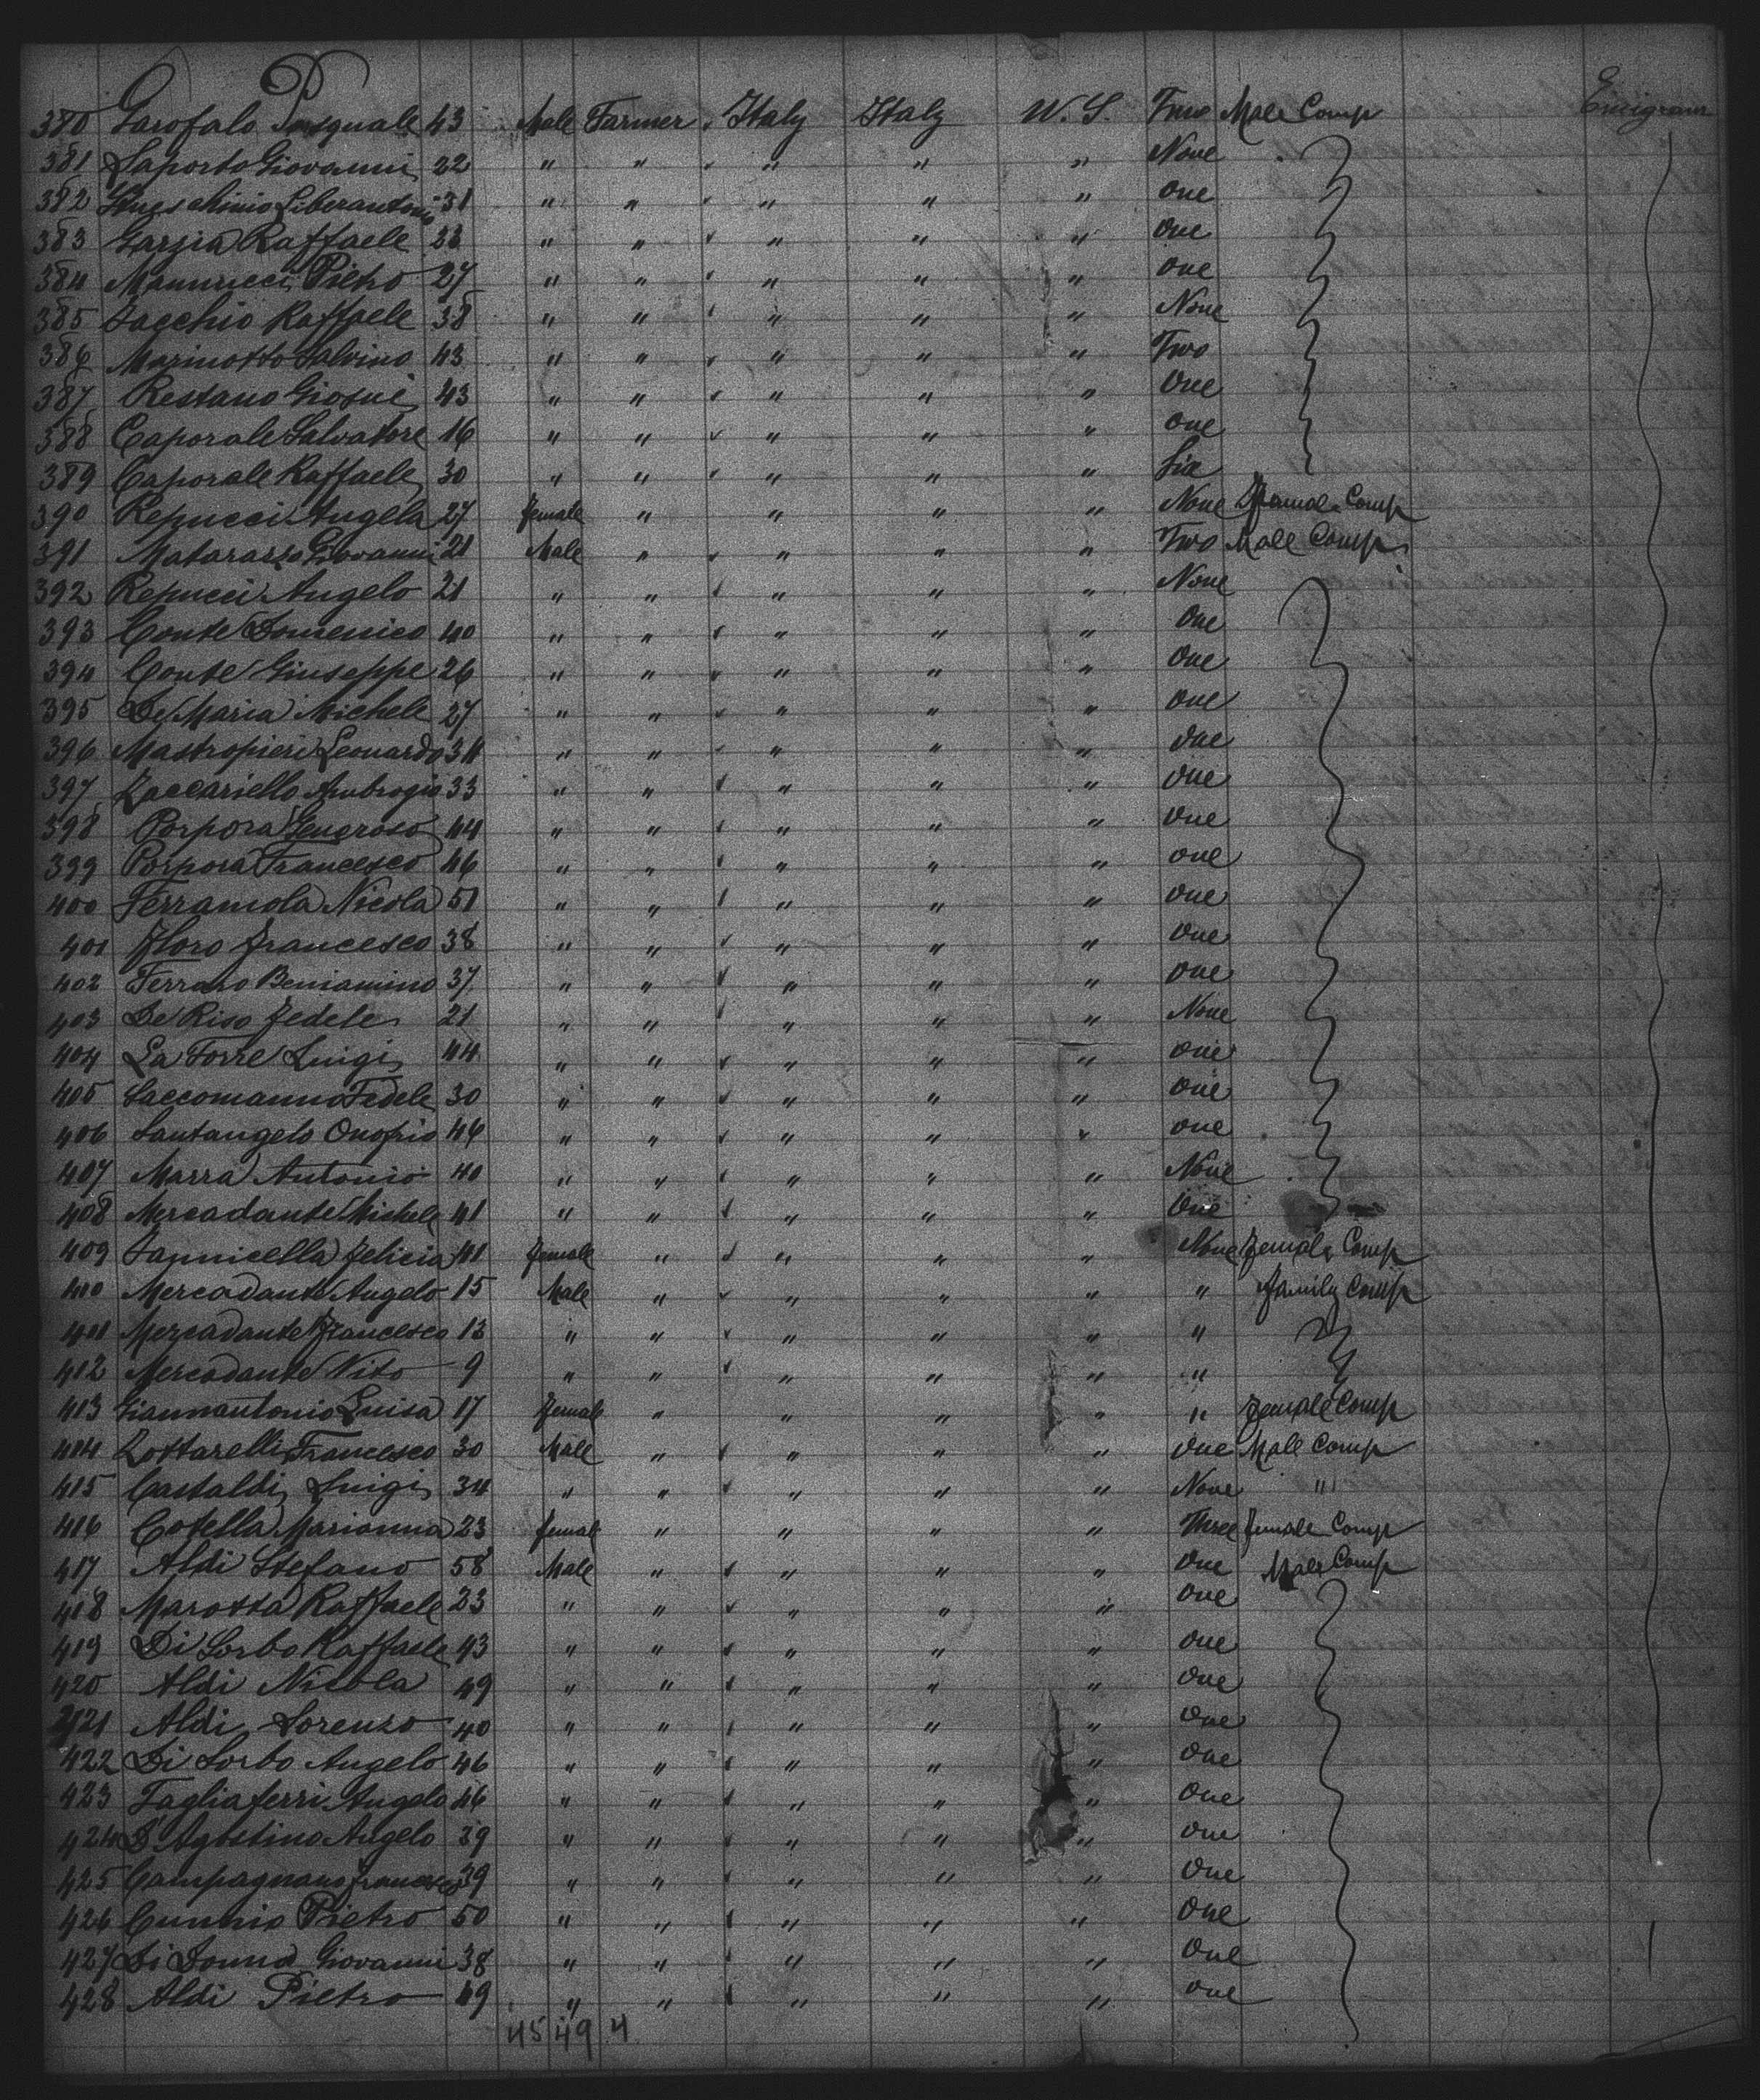 380 Garofalo Pasquale 43 Male Farmer Italy Italy W. S. Two Male Comp Emigrant
381 Saporto Giovanni 22 " " " " " None
382 Liberantonio 31 " " " " " one
383 Garzia Raffaele 33 " " " " " one
384 Mannucci Pietro 27 " " " " " one
385 Raffaele 38 " " " " " None
386 Marinotto Salvino 43 " " " " " Two
387 Restano Giosué 43 " " " " " One
388 Caporale Salvatore 16 " " " " " one
389 Caporale Raffaele 30 " " " " " Six
390 Repucci Angela 27 female " " " " None Female Comp
391 Matarazzo Giovanni 21 Male " " " " Two Male Comp
392 Repucci Angelo 21 " " " " " None
393 Conte Domenico 40 " " " " " One
394 Conte Giuseppe 26 " " " " " One
395 De Maria Michele 27 " " " " " one
396 Mastropieri Leonardo 34 " " " " " one
397 Zaccariello Ambrogio 33 " " " " " one
398 Porpora Generoso 44 " " " " " one
399 Porpora Francesco 46 " " " " " one
400 Ferramola Nicola 51 " " " " " one
401 Floro Francesco 38 " " " " " one
402 Ferraro Beniamino 37 " " " " " one
403 De Riso Fedele 21 " " " " " None
404 La Torre Luigi 44 " " " " " one
405 Saccomanno Fedele 30 " " " " " one
406 Santangelo Onofrio 46 " " " " " one
407 Marra Antonio 40 " " " " " None
408 Mercadante Michele 41 " " " " " One
409 Iannicella Felicia 41 female " " " " None Female Comp
410 Mercadante Angelo 15 Male " " " " " Family Comp
411 Mercadante Francesco 13 " " " " " "
412 Mercadante Vito 9 " " " " " "
413 Giannantonio Luisa 17 female " " " " " Female Comp
414 Zottarelli Francesco 30 Male " " " " One Male Comp
415 Castaldi Luigi 34 " " " " " None "
416 Cotella Marianna 23 female " " " " Three Female Comp
417 Aldi Stefano 58 Male " " " " One Male Comp
418 Marotta Raffaele 23 " " " " " one
419 Di Sorbo Raffaele 43 " " " " " one
420 Aldi Nicola 49 " " " " " one
421 Aldi Lorenzo 40 " " " " " one
422 Di Sorbo Angelo 46 " " " " " one
423 Tagliaferri Angelo 46 " " " " " one
424 D'Agostino Angelo 39 " " " " " one
425 Campagnano Francesco 39 " " " " " One
426 Cunnio Pietro 50 " " " " " One
427 Di Donna Giovanni 38 " " " " " One
428 Aldi Pietro 49 " " " " " one
45 49 4